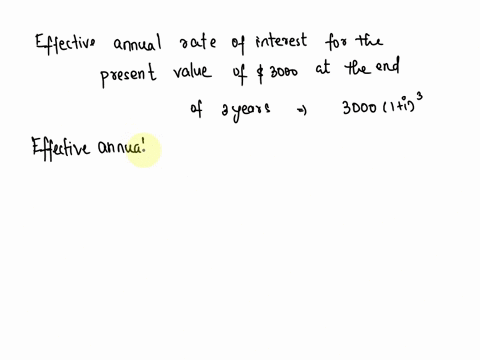 Effective annual rate of interest for the
present value of $ 3000 at the end
of 3 years ⇒ 3000 (1+i)³
Effective annual